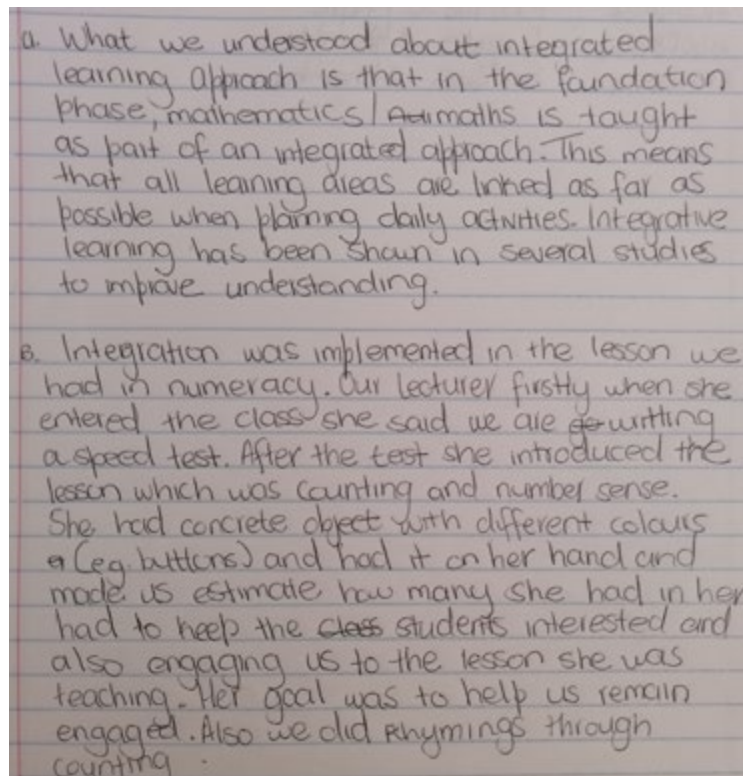 a. What we understood about integrated
learning approach is that in the foundation
phase, mathematics / maths is taught
as part of an integrated approach. This means
that all learning areas are linked as far as
possible when planning daily activities. Integrative
learning has been shown in several studies
to improve understanding.
B. Integration was implemented in the lesson we
had in numeracy. Our lecturer firstly when she
entered the class she said we are writting
a speed test. After the test she introduced the
lesson which was counting and number sense.
She had concrete object with different colours
(eg. buttons) and had it on her hand and
made us estimate how many she had in her
had to keep the class students interested and
also engaging us to the lesson she was
teaching. Her goal was to help us remain
engaged. Also we did Rhymings through
counting.